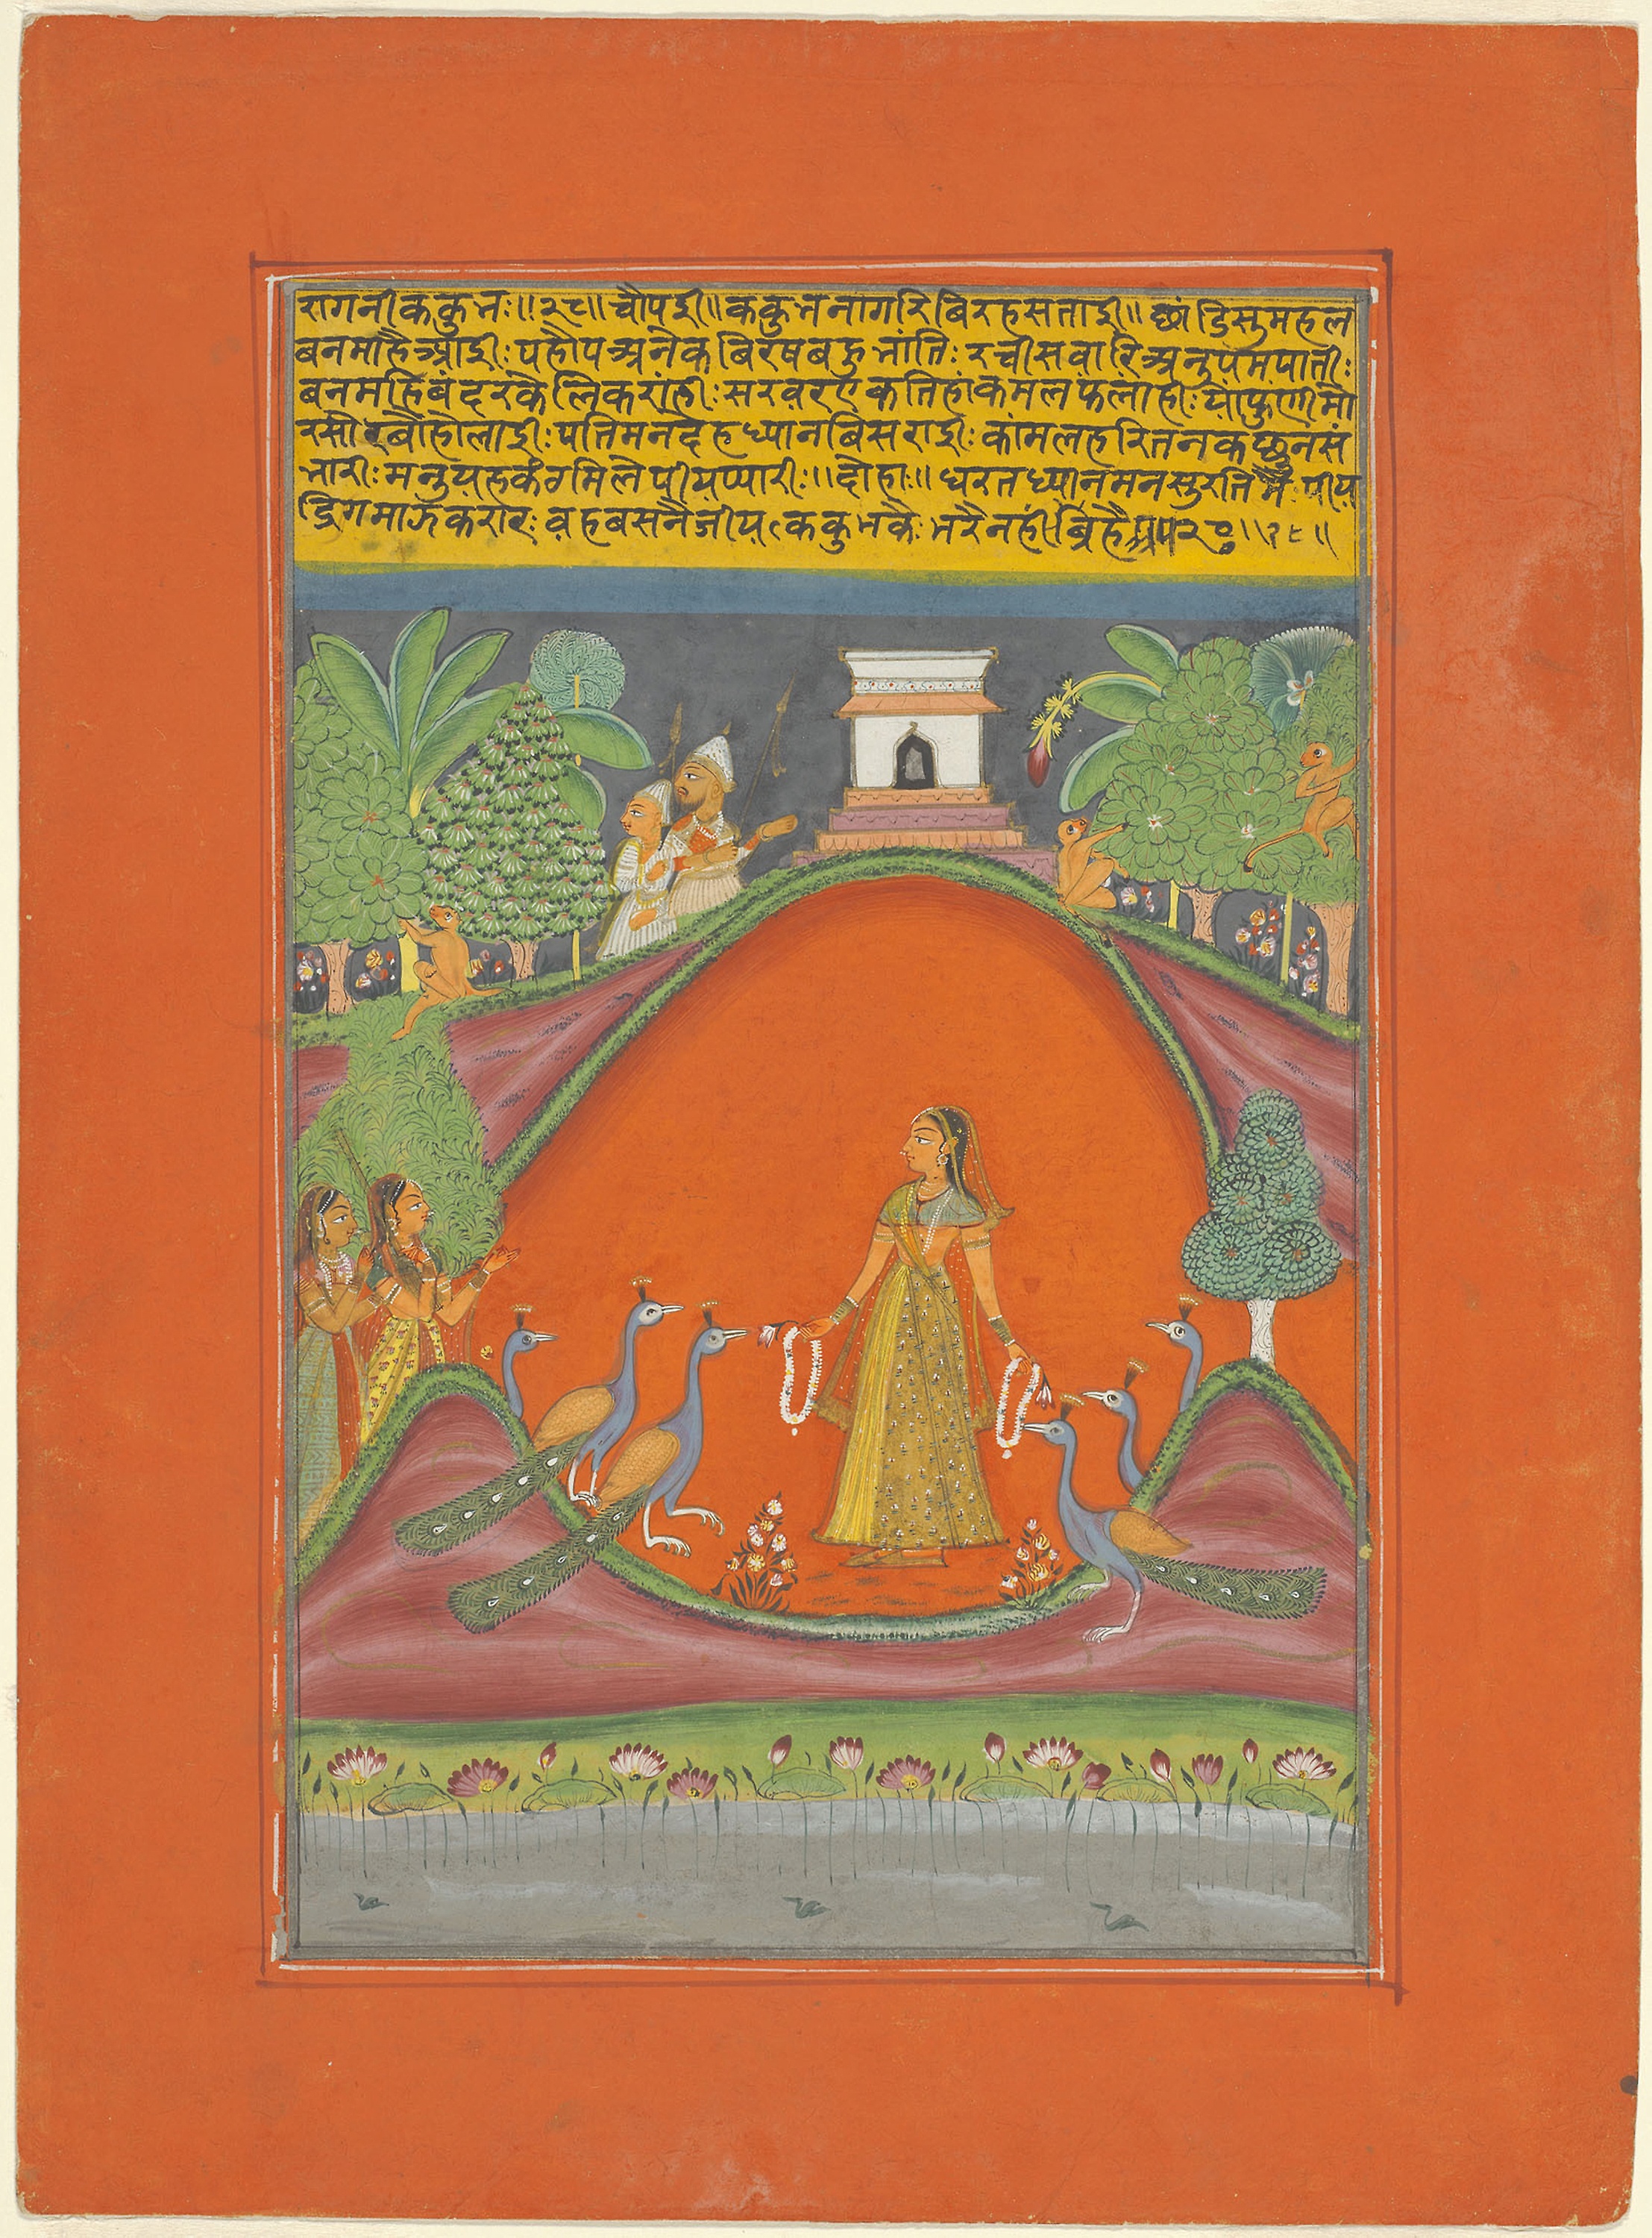 रागनीककुभः॥२८॥चौपई॥ककुभनागरिबिरहसताई॥छांडिसुमहल
बनमाहैआई:पहौपअनेकबिरषबहुभांति:रचीसवारिअनुपमपाती:
बनमहिबंदरकेलिकरांही:सरवरऐकतिहांकमलफलाही:
रसोरबौहोलाई:पतिमनदेहध्यानबिसराई:कांमलहरितनकछुनसं
भारी:मनुयहकंठमिलेपीयप्यारी:॥दोहा:॥धरतध्यानमनसुरतिमै:पीय
द्रिगमाऊकरार:वहबसनैजीयककुभकै:भरैनही